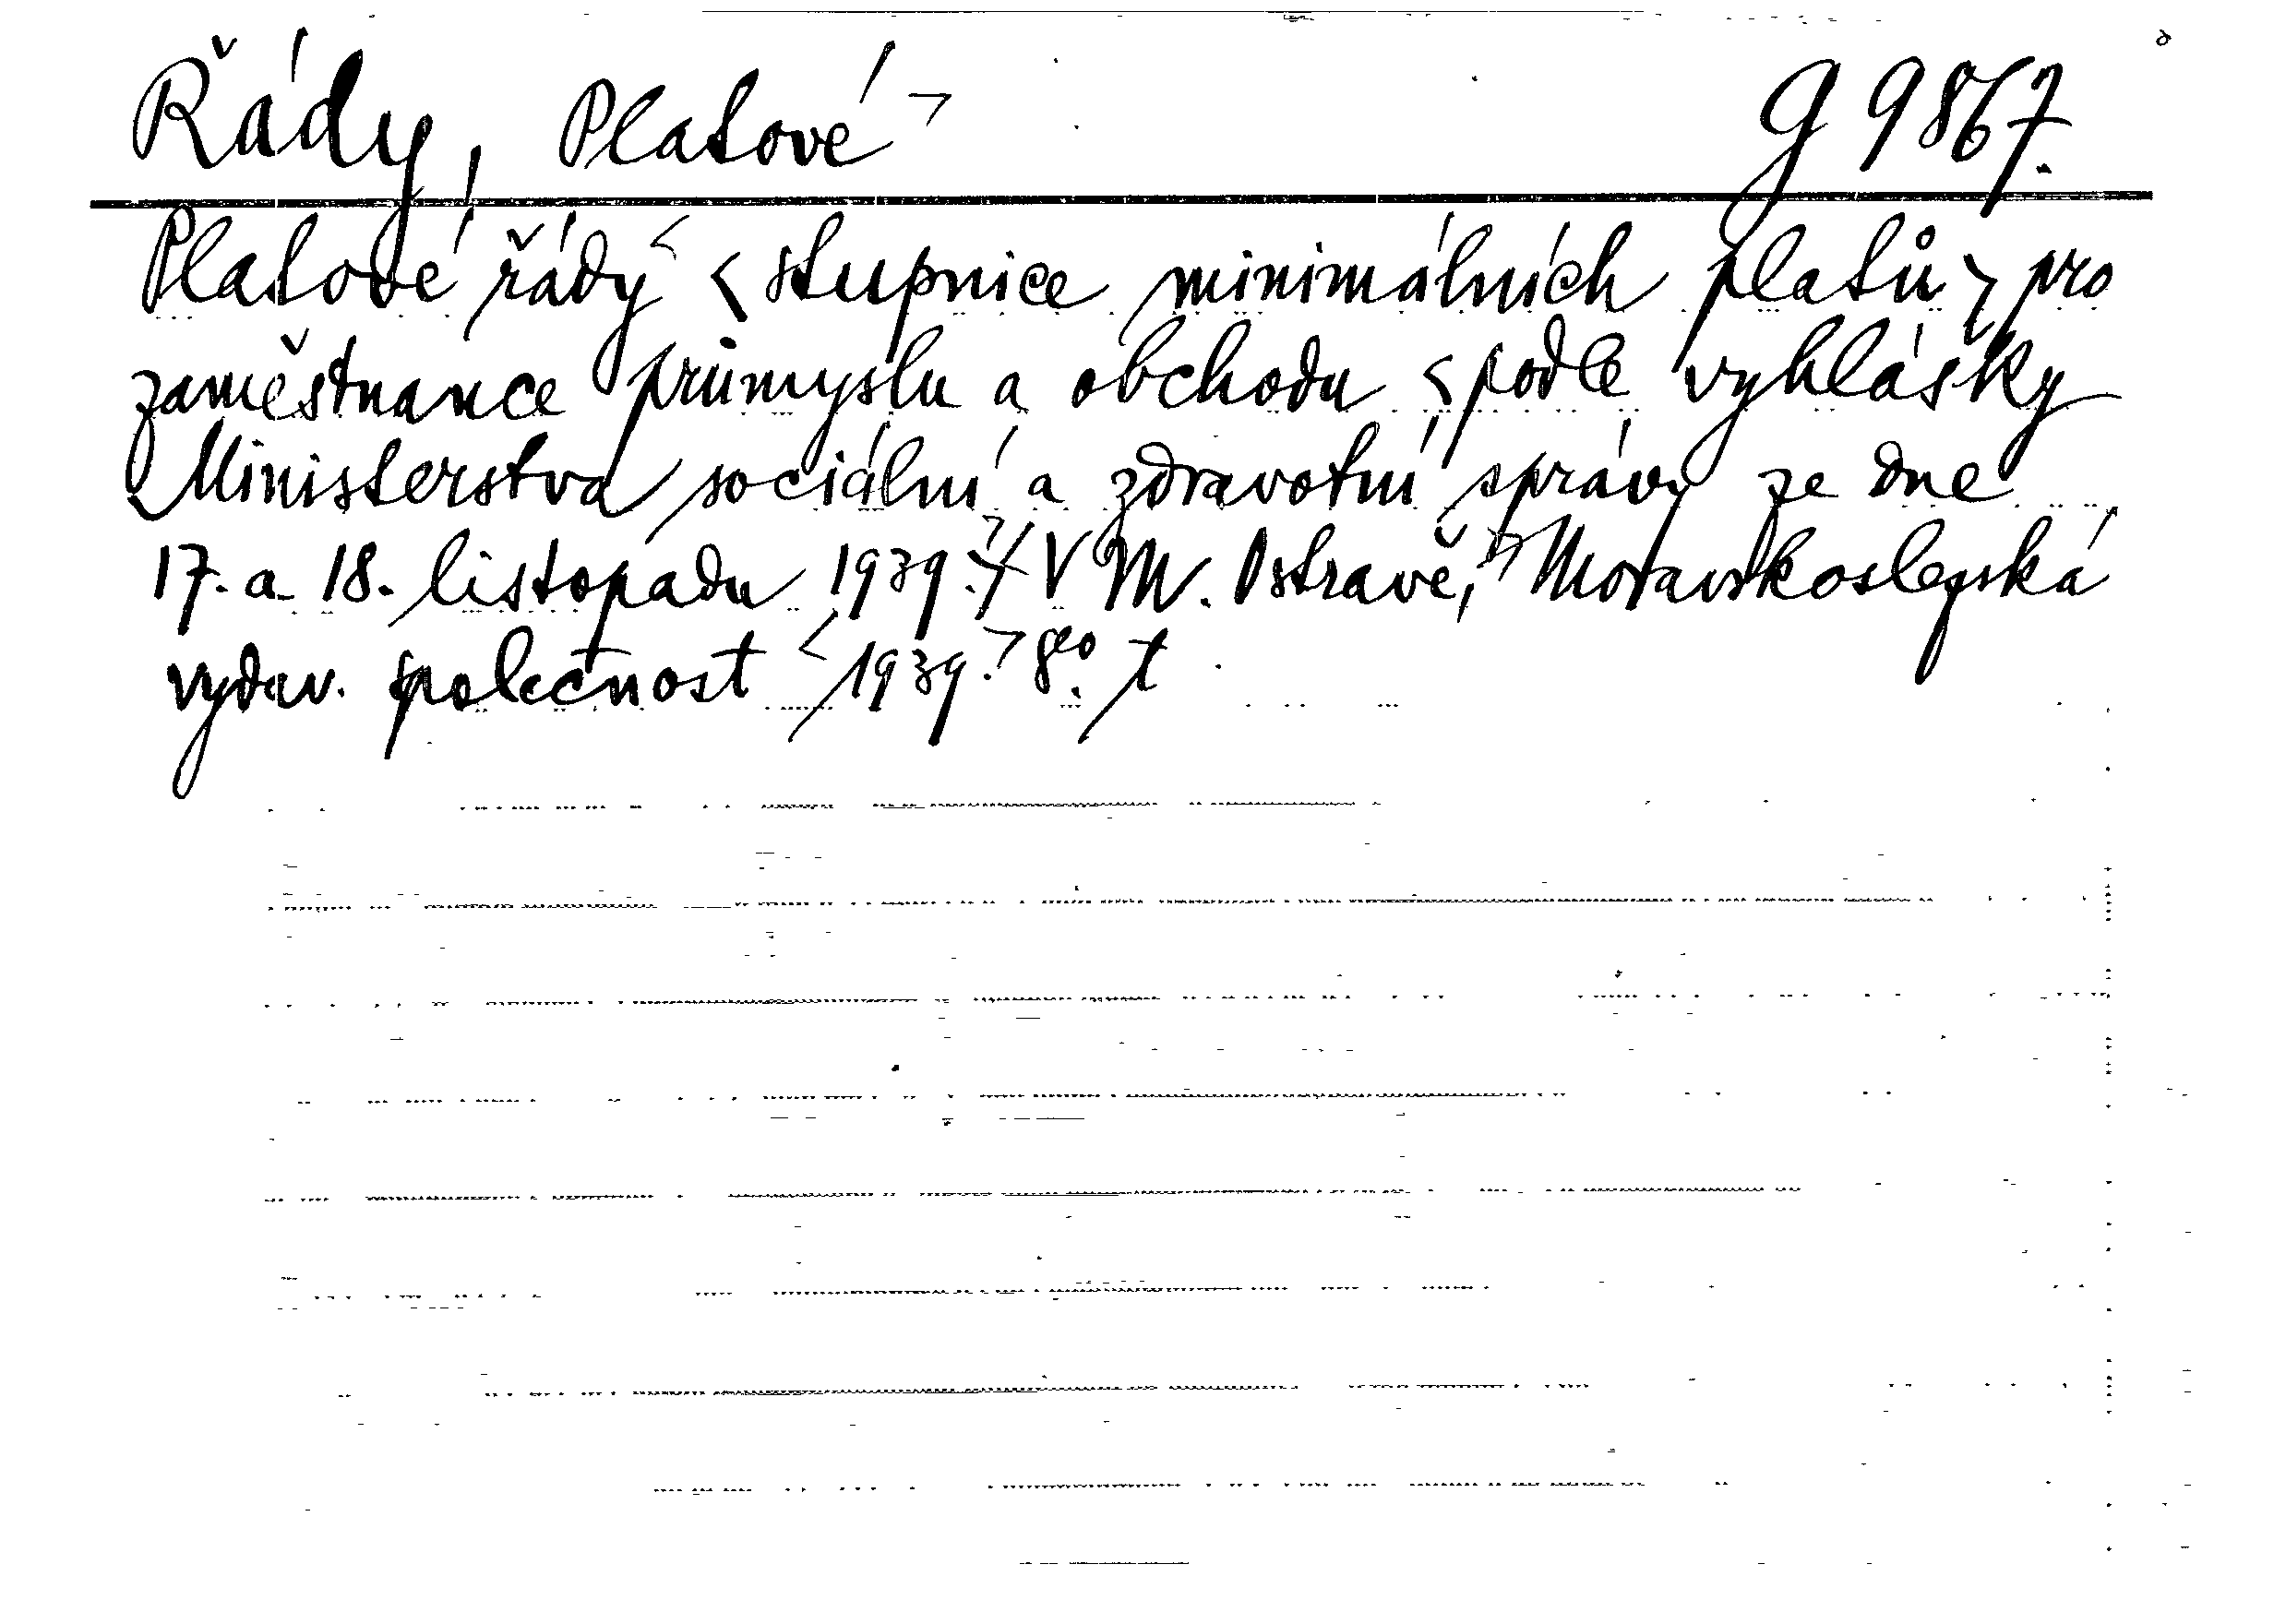 Řády, Platové ¬ G 9867.
Platové řády < stupnice minimálních platů > pro
zaměstnance průmyslu a obchodu < podle vyhlášky
Ministerstva sociální a zdravotní správy ze dne
17. a 18. listopadu 1939.> V M. Ostravě, Moravskoslezská
vydav. společnost < 1939.> 8°.